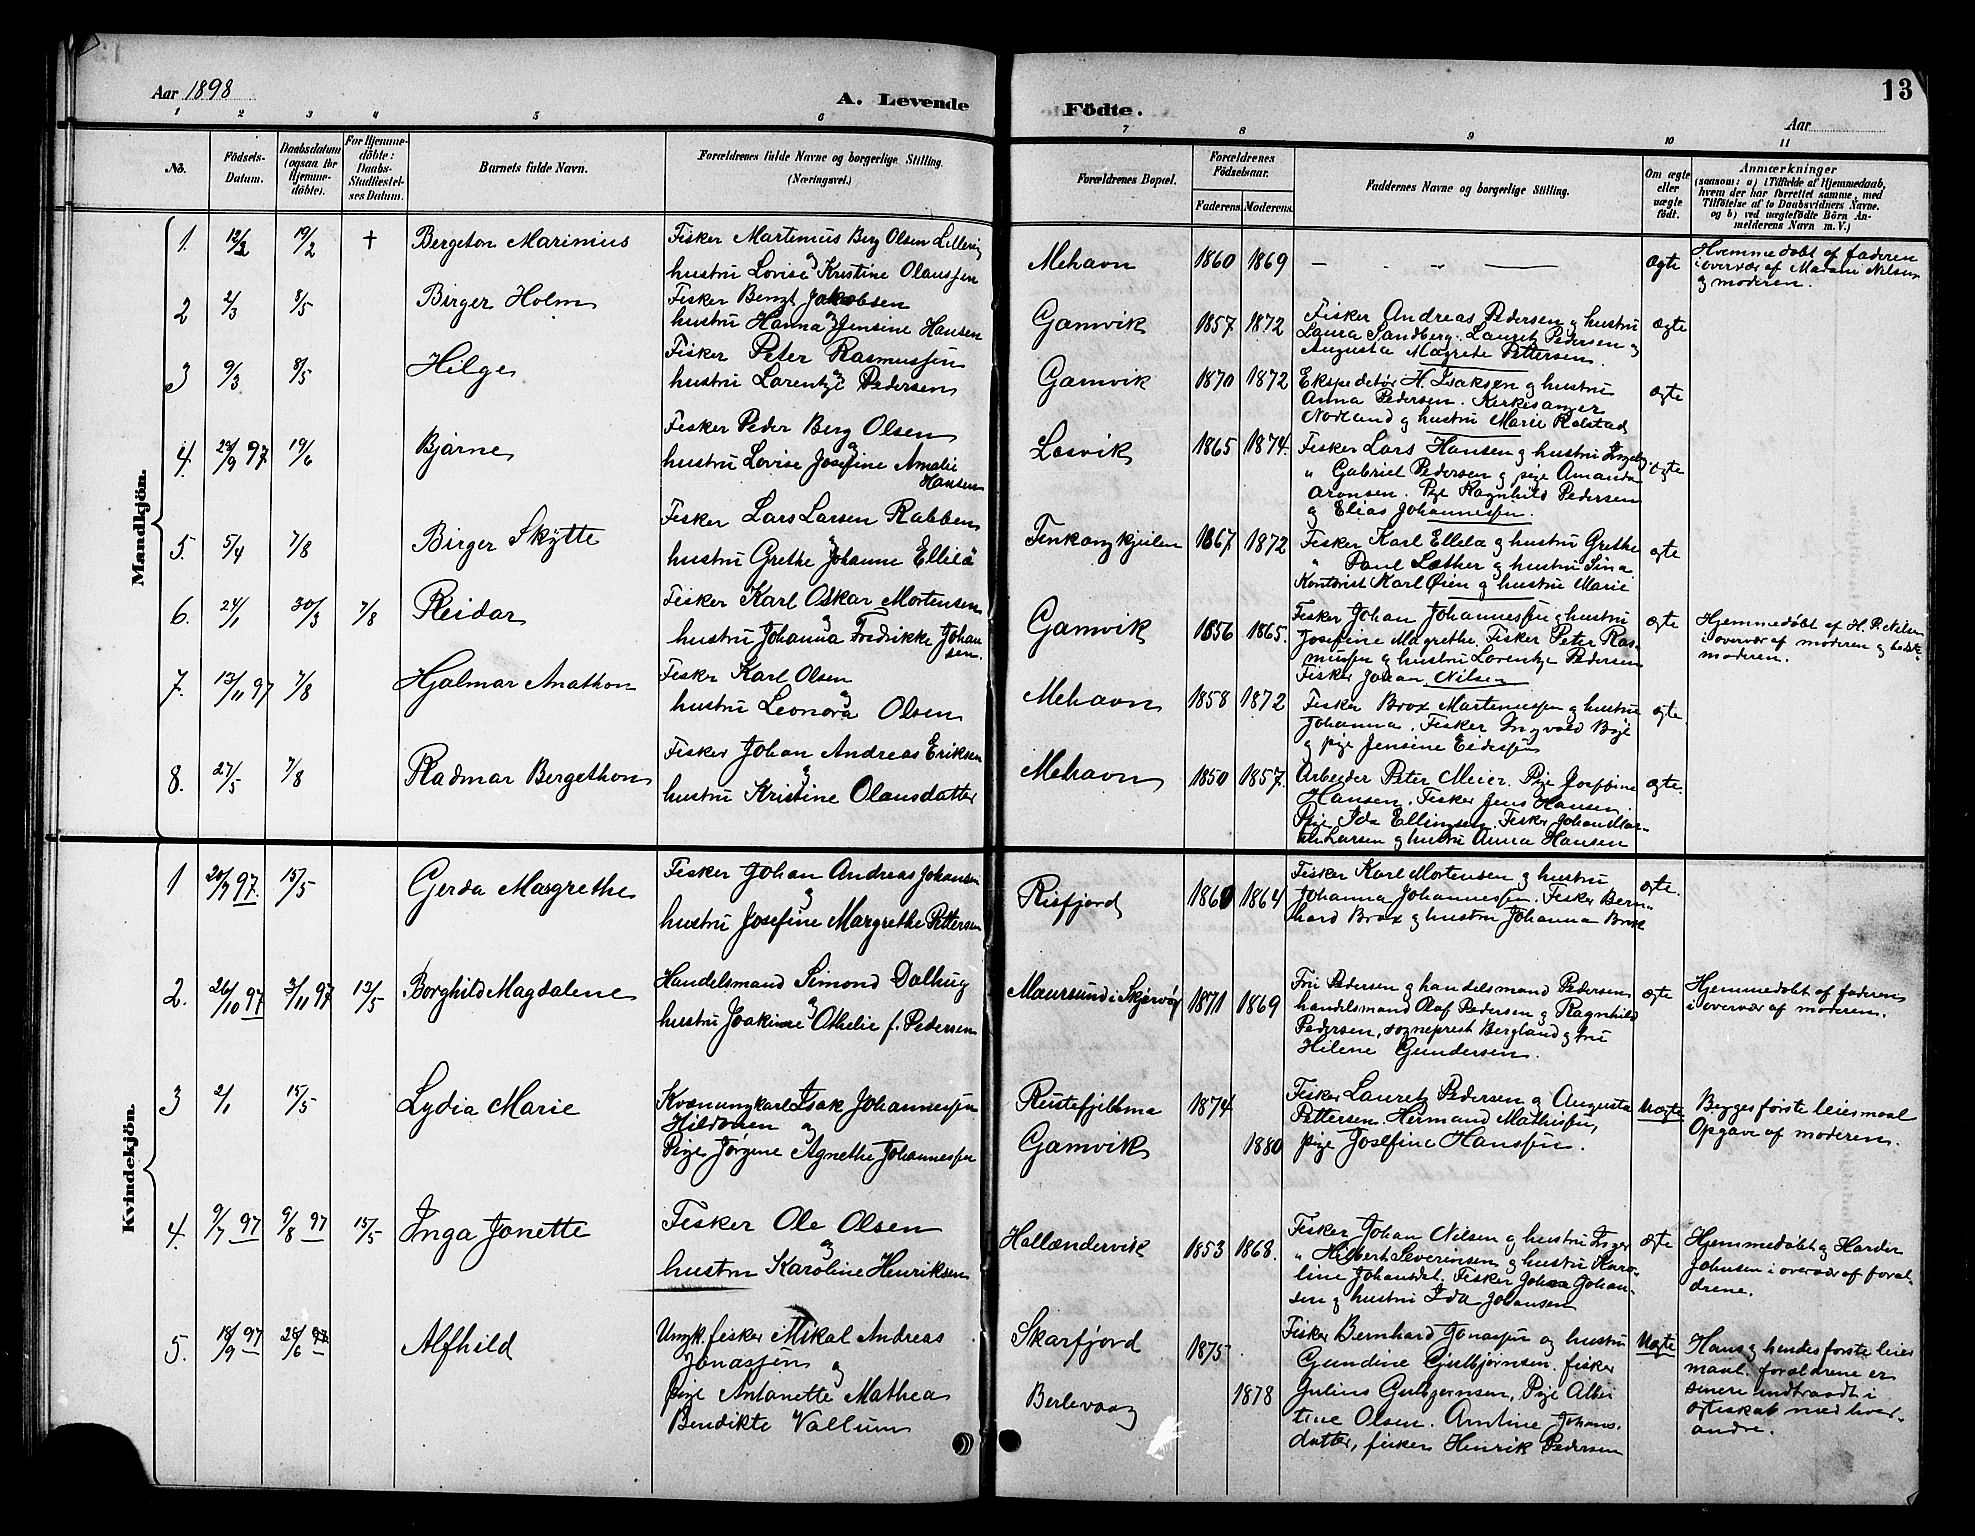 Aar 1898
A. Levende
Födte.
13
Aar
1 2 3 4 5 6 7 8 9 10 11
No.
Födsels-
Datum.
Daabsdatum
(ogsaa for
Hjemme-
döbte).
For Hjemme-
döbte:
Daabs-
Stadfæstel-
ses Datum.
Barnets fulde Navn.
Forældrenes fulde Navne og borgerlige Stilling.
(Næringsvei.)
Forældrenes Bopæl.
Forældrenes
Födselsaar.
Faderens. Moderens.
Faddernes Navne og borgerlige Stilling.
Om ægte
eller
uægte
født.
Anmærkninger
(saasom: a) i Tilfælde af Hjemmedaab,
hvem der har forrettet samme, med
Tilföielse af to Daabsvidners Navne.
og b) ved uægtefödte Börn An-
melderens Navn m. V.)
Mandkjön.
1. 12/2 19/2 † Bergeton Marinius
Fisker Martinus Berg Olsen Lillevig
og
hustru Lovise Kristine Olaussen
Mehavn 1860 1869 — — — ægte
Hjemmedøbt af faderen
i overvær af Marane Nilsen
og moderen.
2 2/3 8/5 Birger Holm
Fisker Benzt Jakobsen
og
hustru Hanna Jensine Hansen
Gamvik 1857 1872
Fisker Andreas Pedersen og hustru
Laura Sandberg. Lauretz Pedersen og
Augusta Magrete Pettersen.
ægte
3 9/3 8/5 Helge
Fisker Peter Rasmussen
og
hustru Lorentze Pedersen
Gamvik 1870 1872
Ekspeditør H. Isaksen og hustru
Anna Pedersen. Kirkesanger
Nordland og hustru Marie Rolstad
ægte
4. 29/9 97 19/6 Bjarne
Fisker Peder Berg Olsen
og
hustru Lovise Josefine Amalie
Hansen
Losvik 1865 1874.
Fisker Lars Hansen og hustru Ingeb.
" Gabriel Pedersen og pige Amanda
Aronsen. Pige Ragnhild Pedersen
og Elias Johannessen.
ægte
5. 5/4 7/8 Birger Skytte
Fisker Lars Larsen Rabben
og
hustru Grethe Johanne Ellilä
Finkongkjeilen 1867 1872
Fisker Karl Ellela og hustru Grethe
" Paul Lother og hustru Sina
Kontorist Karl Øien og hustru Marie
ægte
6. 24/1 30/3 7/8 Reidar
Fisker Karl Oskar Mortensen
og
hustru Johanna Fredrikke Johan
sen.
Gamvik 1856 1865.
Fisker Johan Johannessen og hustru
Josefine Magrethe. Fisker Peter Ras-
mussen og hustru Lorentze Pedersen
Fisker Johan Nilsen
ægte
Hjemmedøbt af H. P. Nilsen
i overvær af moderen og bedste-
moderen.
7. 13/11 97 7/8 Hjalmar Anathon
Fisker Karl Olsen
og
hustru Leonora Olsen
Mehavn 1858 1872
Fisker Brox Martinussen og hustru
Johanna. Fisker Ingvald Bøje
og pige Jensine Eidissen
ægte
8. 27/5 7/8 Radmar Bergethon
Fisker Johan Andreas Eriksen
og
hustru Kristine Olausdatter
Mehavn 1850 1857.
Arbeider Peter Meier. Pige Josefine
Hansen. Fisker Jens Hansen.
Pige Ida Ellingsen. Fisker Johan
Larsen og hustru Anna Hansen
ægte.
Kvindekjön.
1 20/7 97. 15/5 Gerda Margrethe
Fisker Johan Andreas Johansen
og
hustru Josefine Margrethe Pettersen
Risfjord 1860 1864
Fisker Karl Mortensen og hustru
Johanna Johannessen. Fisker Bern-
hard Brox og hustru Johanna Brox
ægte.
2. 26/10 97 3/11 97 13/5 Borghild Magdalene
Handelsmand Simond Dalhug
og
hustru Joakime Othelie f. Pedersen
Maursund i Skjervøy 1871 1869
Fru Pedersen og handelsmand Pedersen
handelsmand Olaf Pedersen og Ragnhild
Pedersen, sogneprest Bergland og fru
Hilene Gundersen.
ægte
Hjemmedøbt af faderen
i overvær af moderen.
3 2/1 15/5 Lydia Marie
Kvænungkarl Isak Johannessen
Hildonen og
Pige Jørgine Agnethe Johannessen
Rustefjelbma 1874
Gamvik 1880
Fisker Lauretz Pedersen og Augusta
Pettersen. Hermand Mathissen,
pige Josefine Hanssen.
Uægte
Begges første leiermaal
Opgave af moderen.
4. 9/7 97 9/8 97 15/5 Inga Jonette
Fisker Ole Olsen
og
hustru Karoline Henriksen
Hollændervik 1853 1868.
Fisker Johan Nilsen og hustru Inger
" Hilbert Severinsen og hustru Karo-
line Johansdat. Fisker Johan Johan-
sen og hustru Ida Johansen
ægte
Hjemmedøbt og Hardar
Johnsen i overvær af foræl-
drene.
5. 18/9 97 28/6 98 Alfhild
Ungk. fisker Mikal Andreas
Jonassen og
pige Antonette Mathea
Bendikte Vallum
Skarfjord 1875
Berlevaag 1878
Fisker Bernhard Jonassen og hustru
Gundine Gulbjørnsen. fisker
Julius Gulbjørnsen, Pige Alber
tine Olsen. Antine Johans
datter, fisker Henrik Pedersen
Uægte
Hans og hendes første leier
maal. forældrene er
senere indtraadt i
ægteskab med hver-
andre.